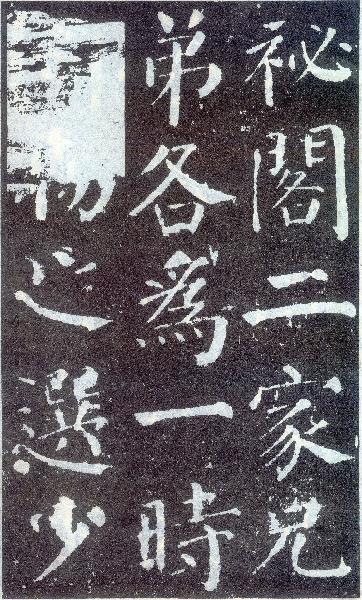 祕閣二家兄
弟各爲一時
物之選少